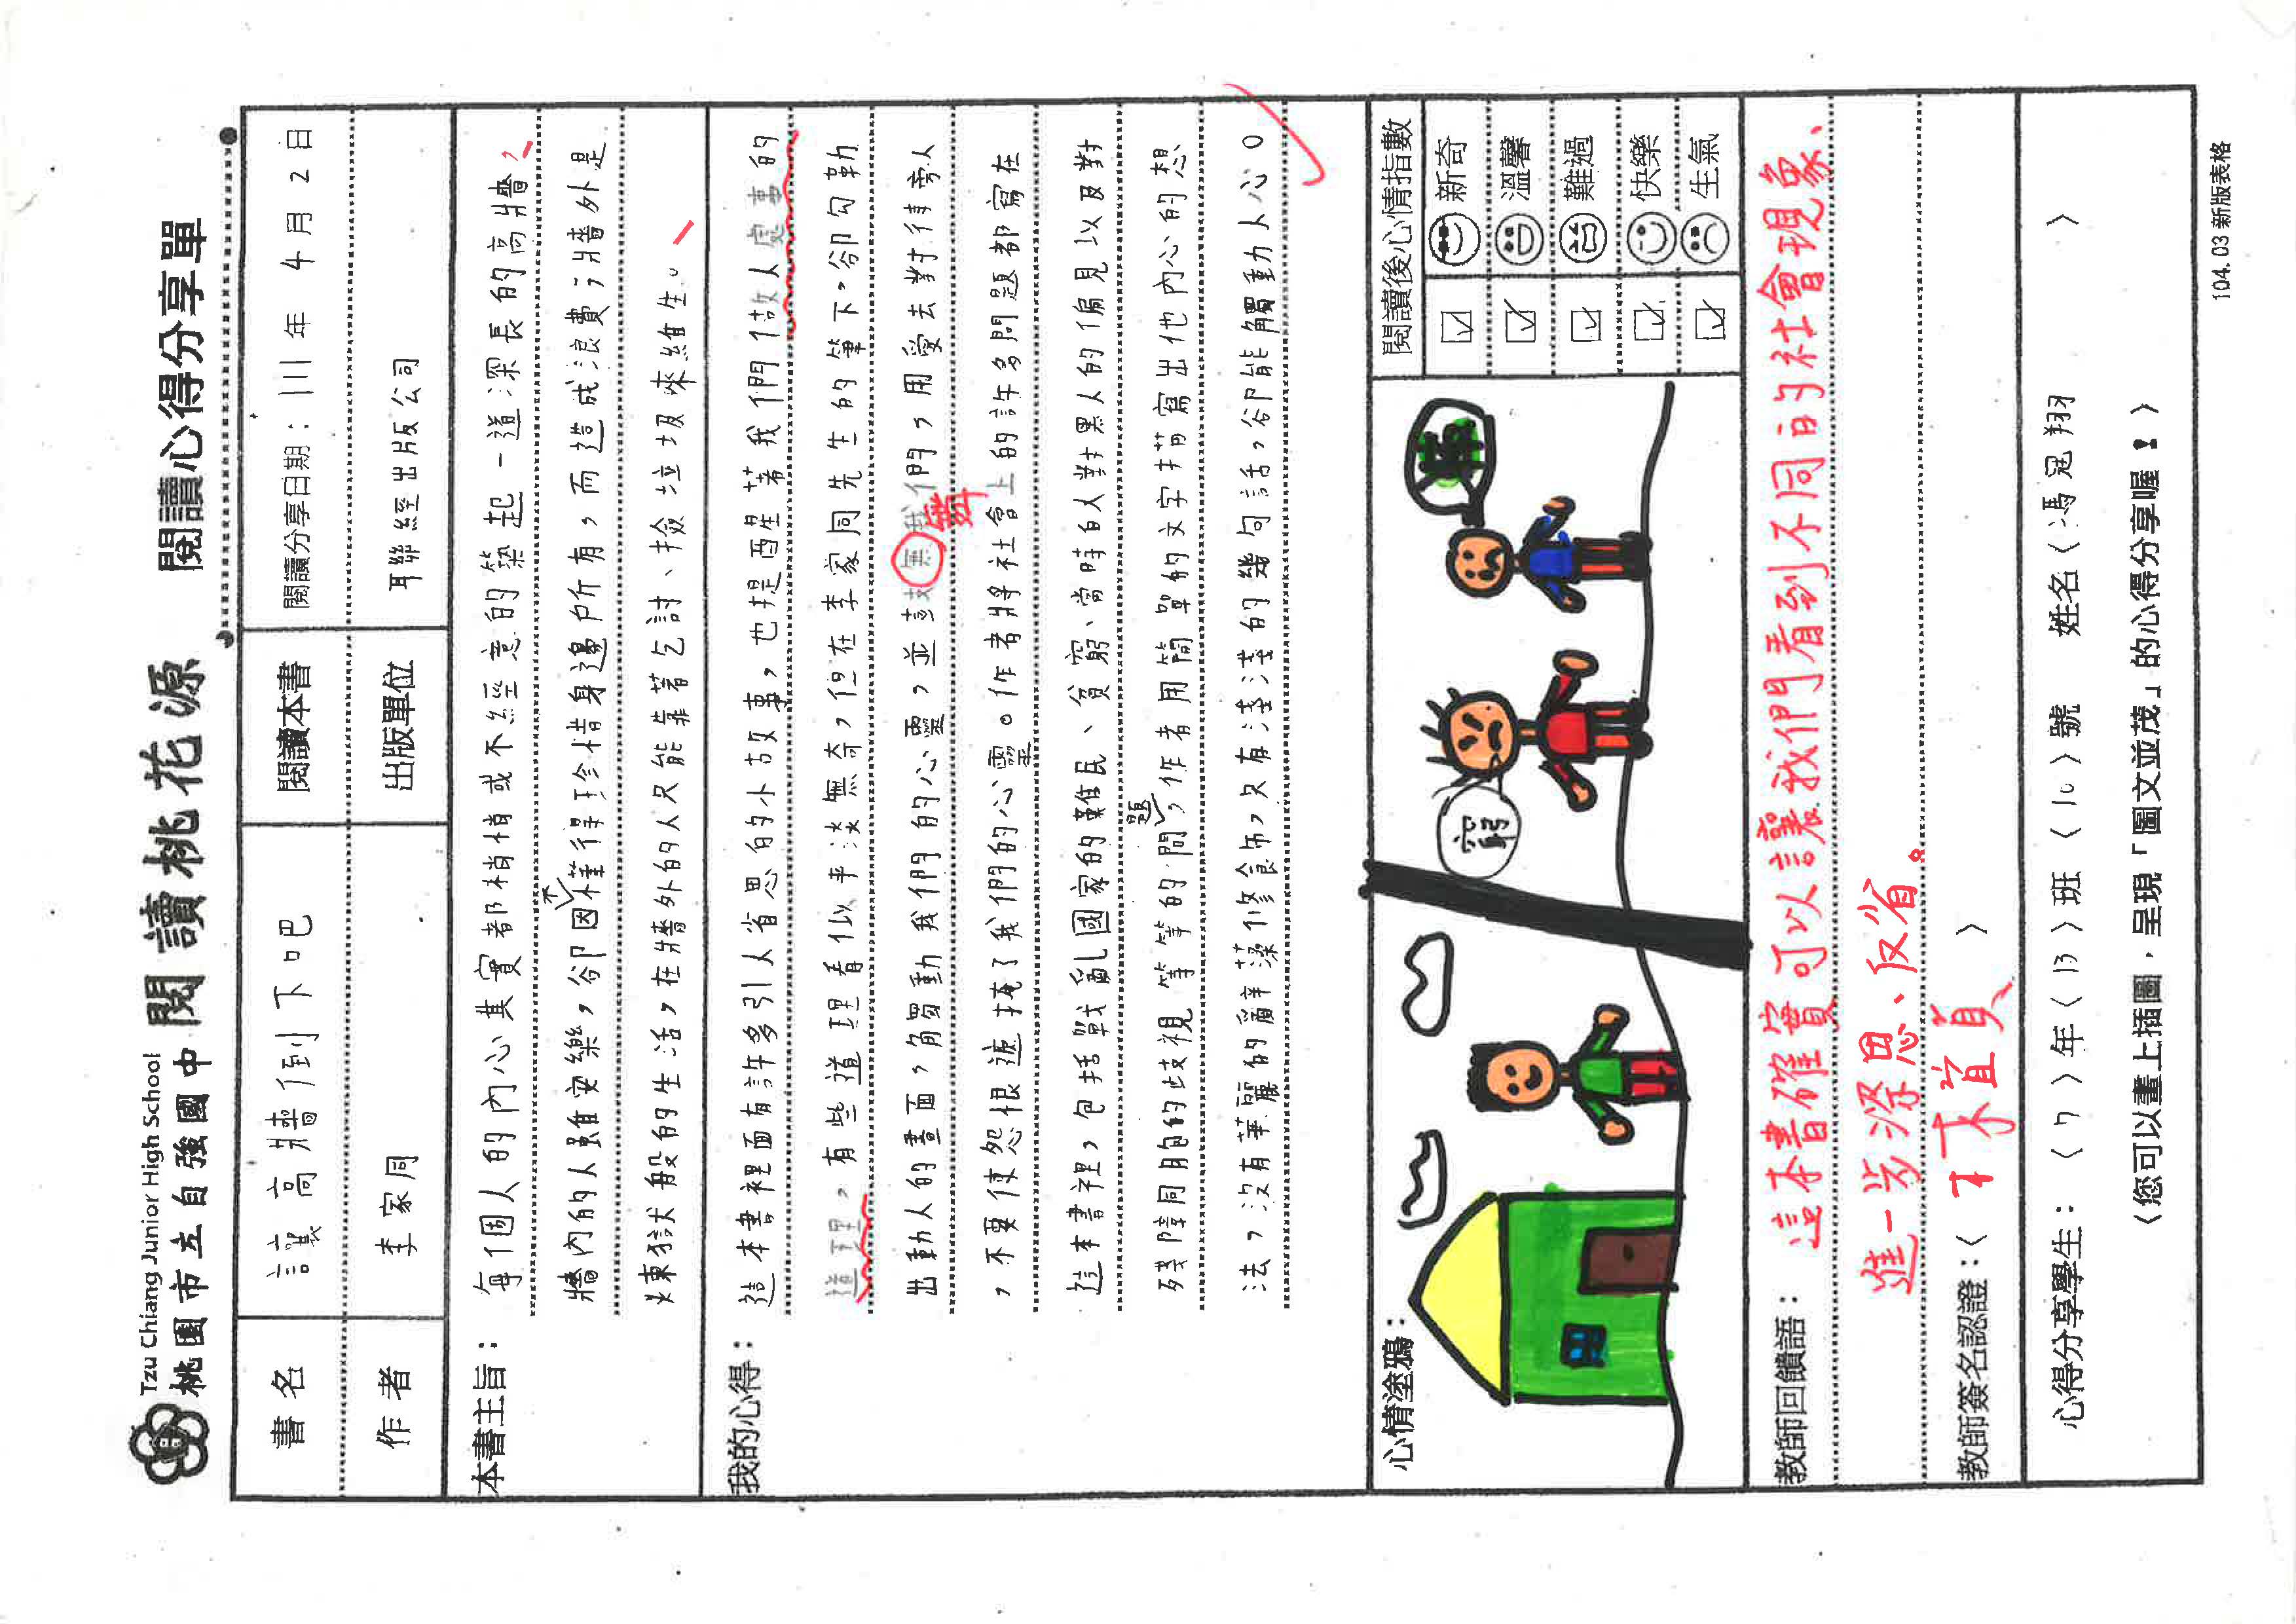 Tzu Chiang Junior High School
桃園市立自強國中 閱讀桃花源 閱讀心得分享單
書名 讓高牆倒下吧 閱讀本書 閱讀分享日期：111年4月2日
作者 李家同 出版單位 聯經出版公司
本書主旨：每個人的內心其實都稍稍或不經意的築起一道深長的高牆，
牆內的人雖安樂，卻因不懂得珍惜身邊所有，而造成浪費；牆外是
煉獄般的生活，在牆外的人只能靠著乞討、撿垃圾來維生。
我的心得：這本書裡面有許多引人省思的小故事，也提醒著我們做人處事的
道理，有些道理看似平淡無奇，但在李家同先生的筆下，卻勾勒
出動人的畫面，觸動我們的心靈，並鼓無我們，用愛去對待旁人
舞
，不要使怨恨遮掩了我們的心靈。作者將社會上的許多問題都寫在
這本書裡，包括戰亂國家的難民、貧窮、當時白人對黑人的偏見以及對
殘障同胞的歧視等等的問題，作者用簡單的文字描寫出他內心的想
法，沒有華麗的辭藻修飾，只有淺淺的幾句話，卻能觸動人心。
心情塗鴉：
窮
閱讀後心情指數
新奇
溫馨
難過
快樂
生氣
教師回饋語：這本書確實可以讓我們看到不同的社會現象、
進一步深思、反省。
教師簽名認證：〈 〉
心得分享學生：〈7〉年〈13〉班〈10〉號 姓名〈馮冠翔 〉
〈您可以畫上插圖，呈現「圖文並茂」的心得分享喔！〉
104.03新版表格